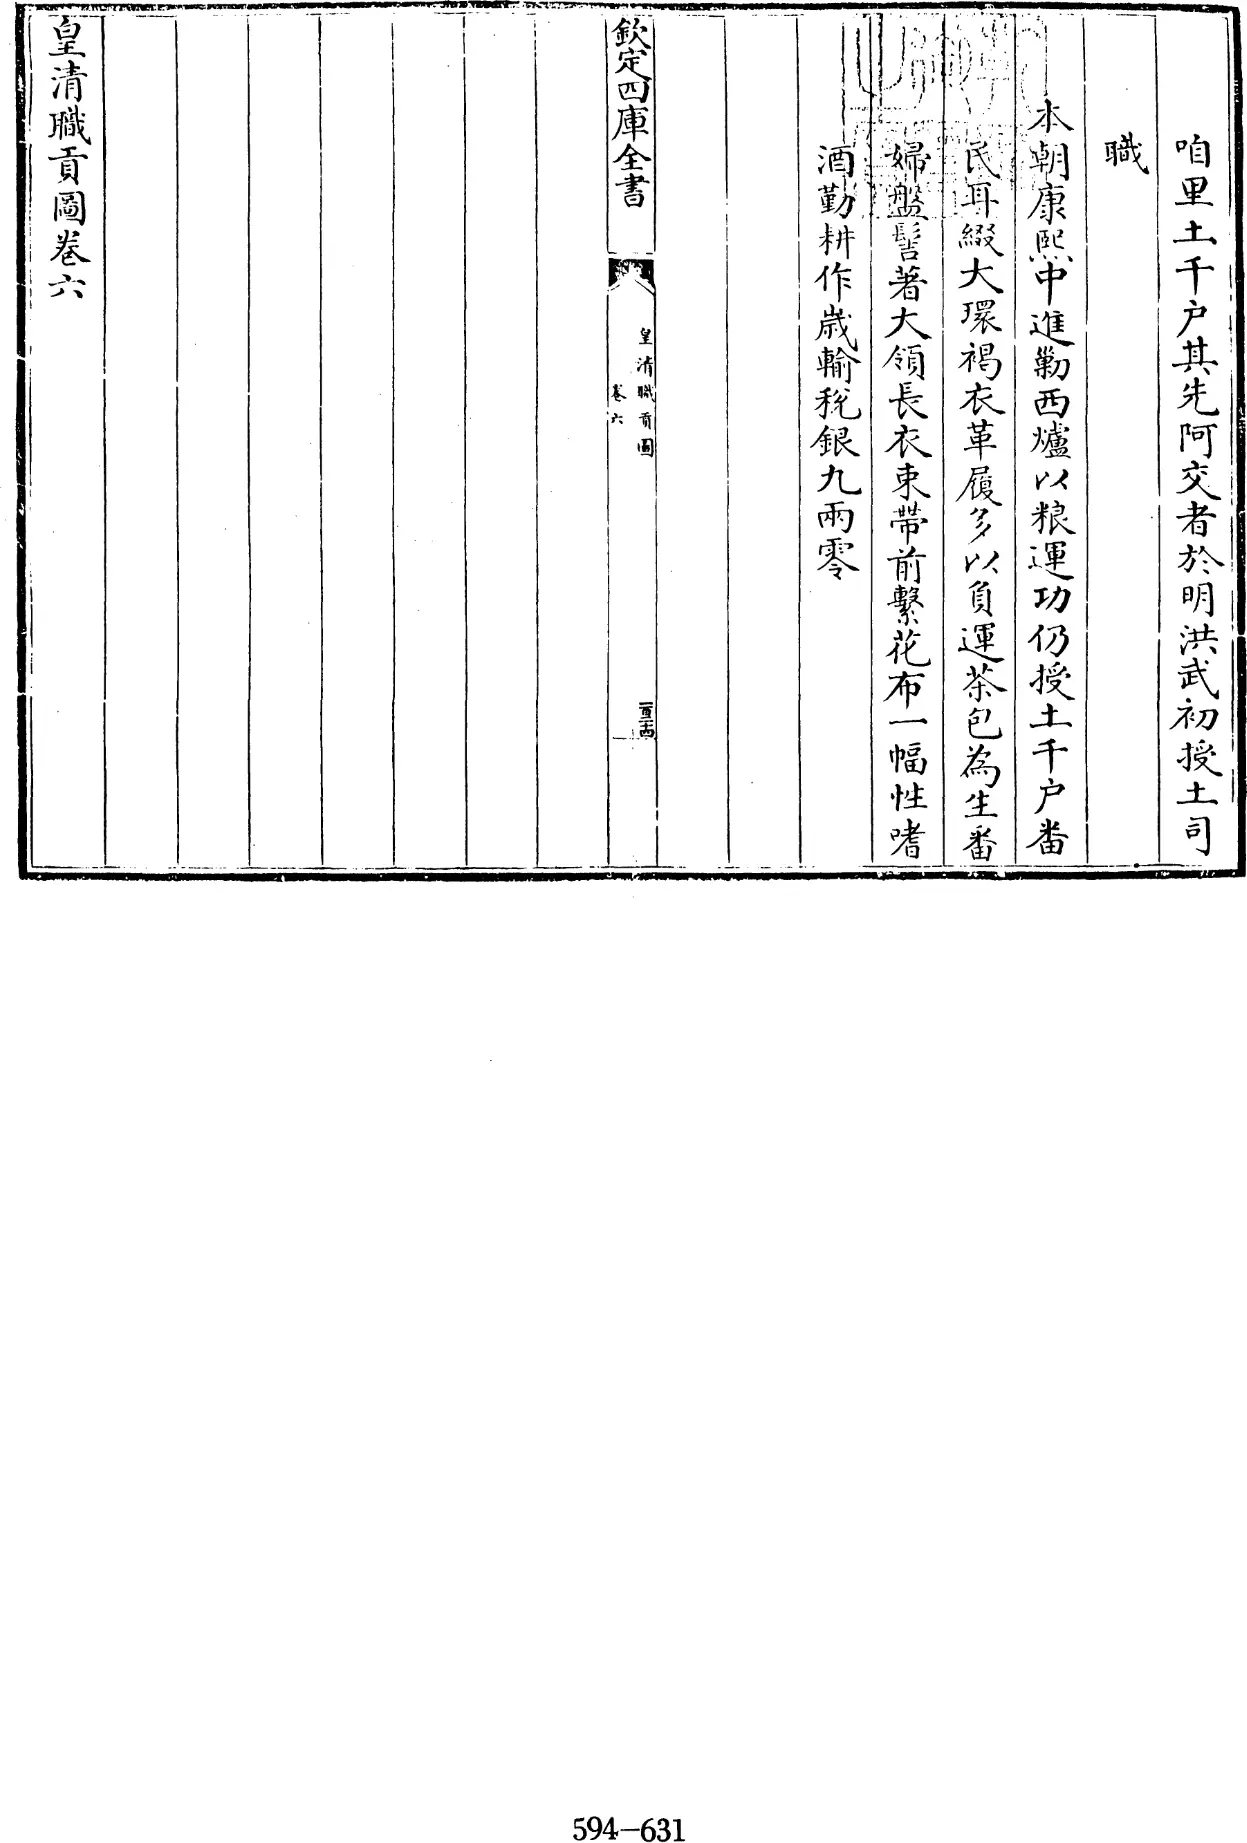 咱里土千户其先阿交者於明洪武初授土司
職
本朝康熙中進勦西爐以粮運功仍授土千户番
民耳綴大環褐衣革履多以負運茶包為生番
婦盤髻著大領長衣束帶前繫花布一幅性嗜
酒勤耕作歲輸稅銀九兩零
欽定四庫全書
皇清職貢圖
卷六
皇清職貢圖卷六
594-631